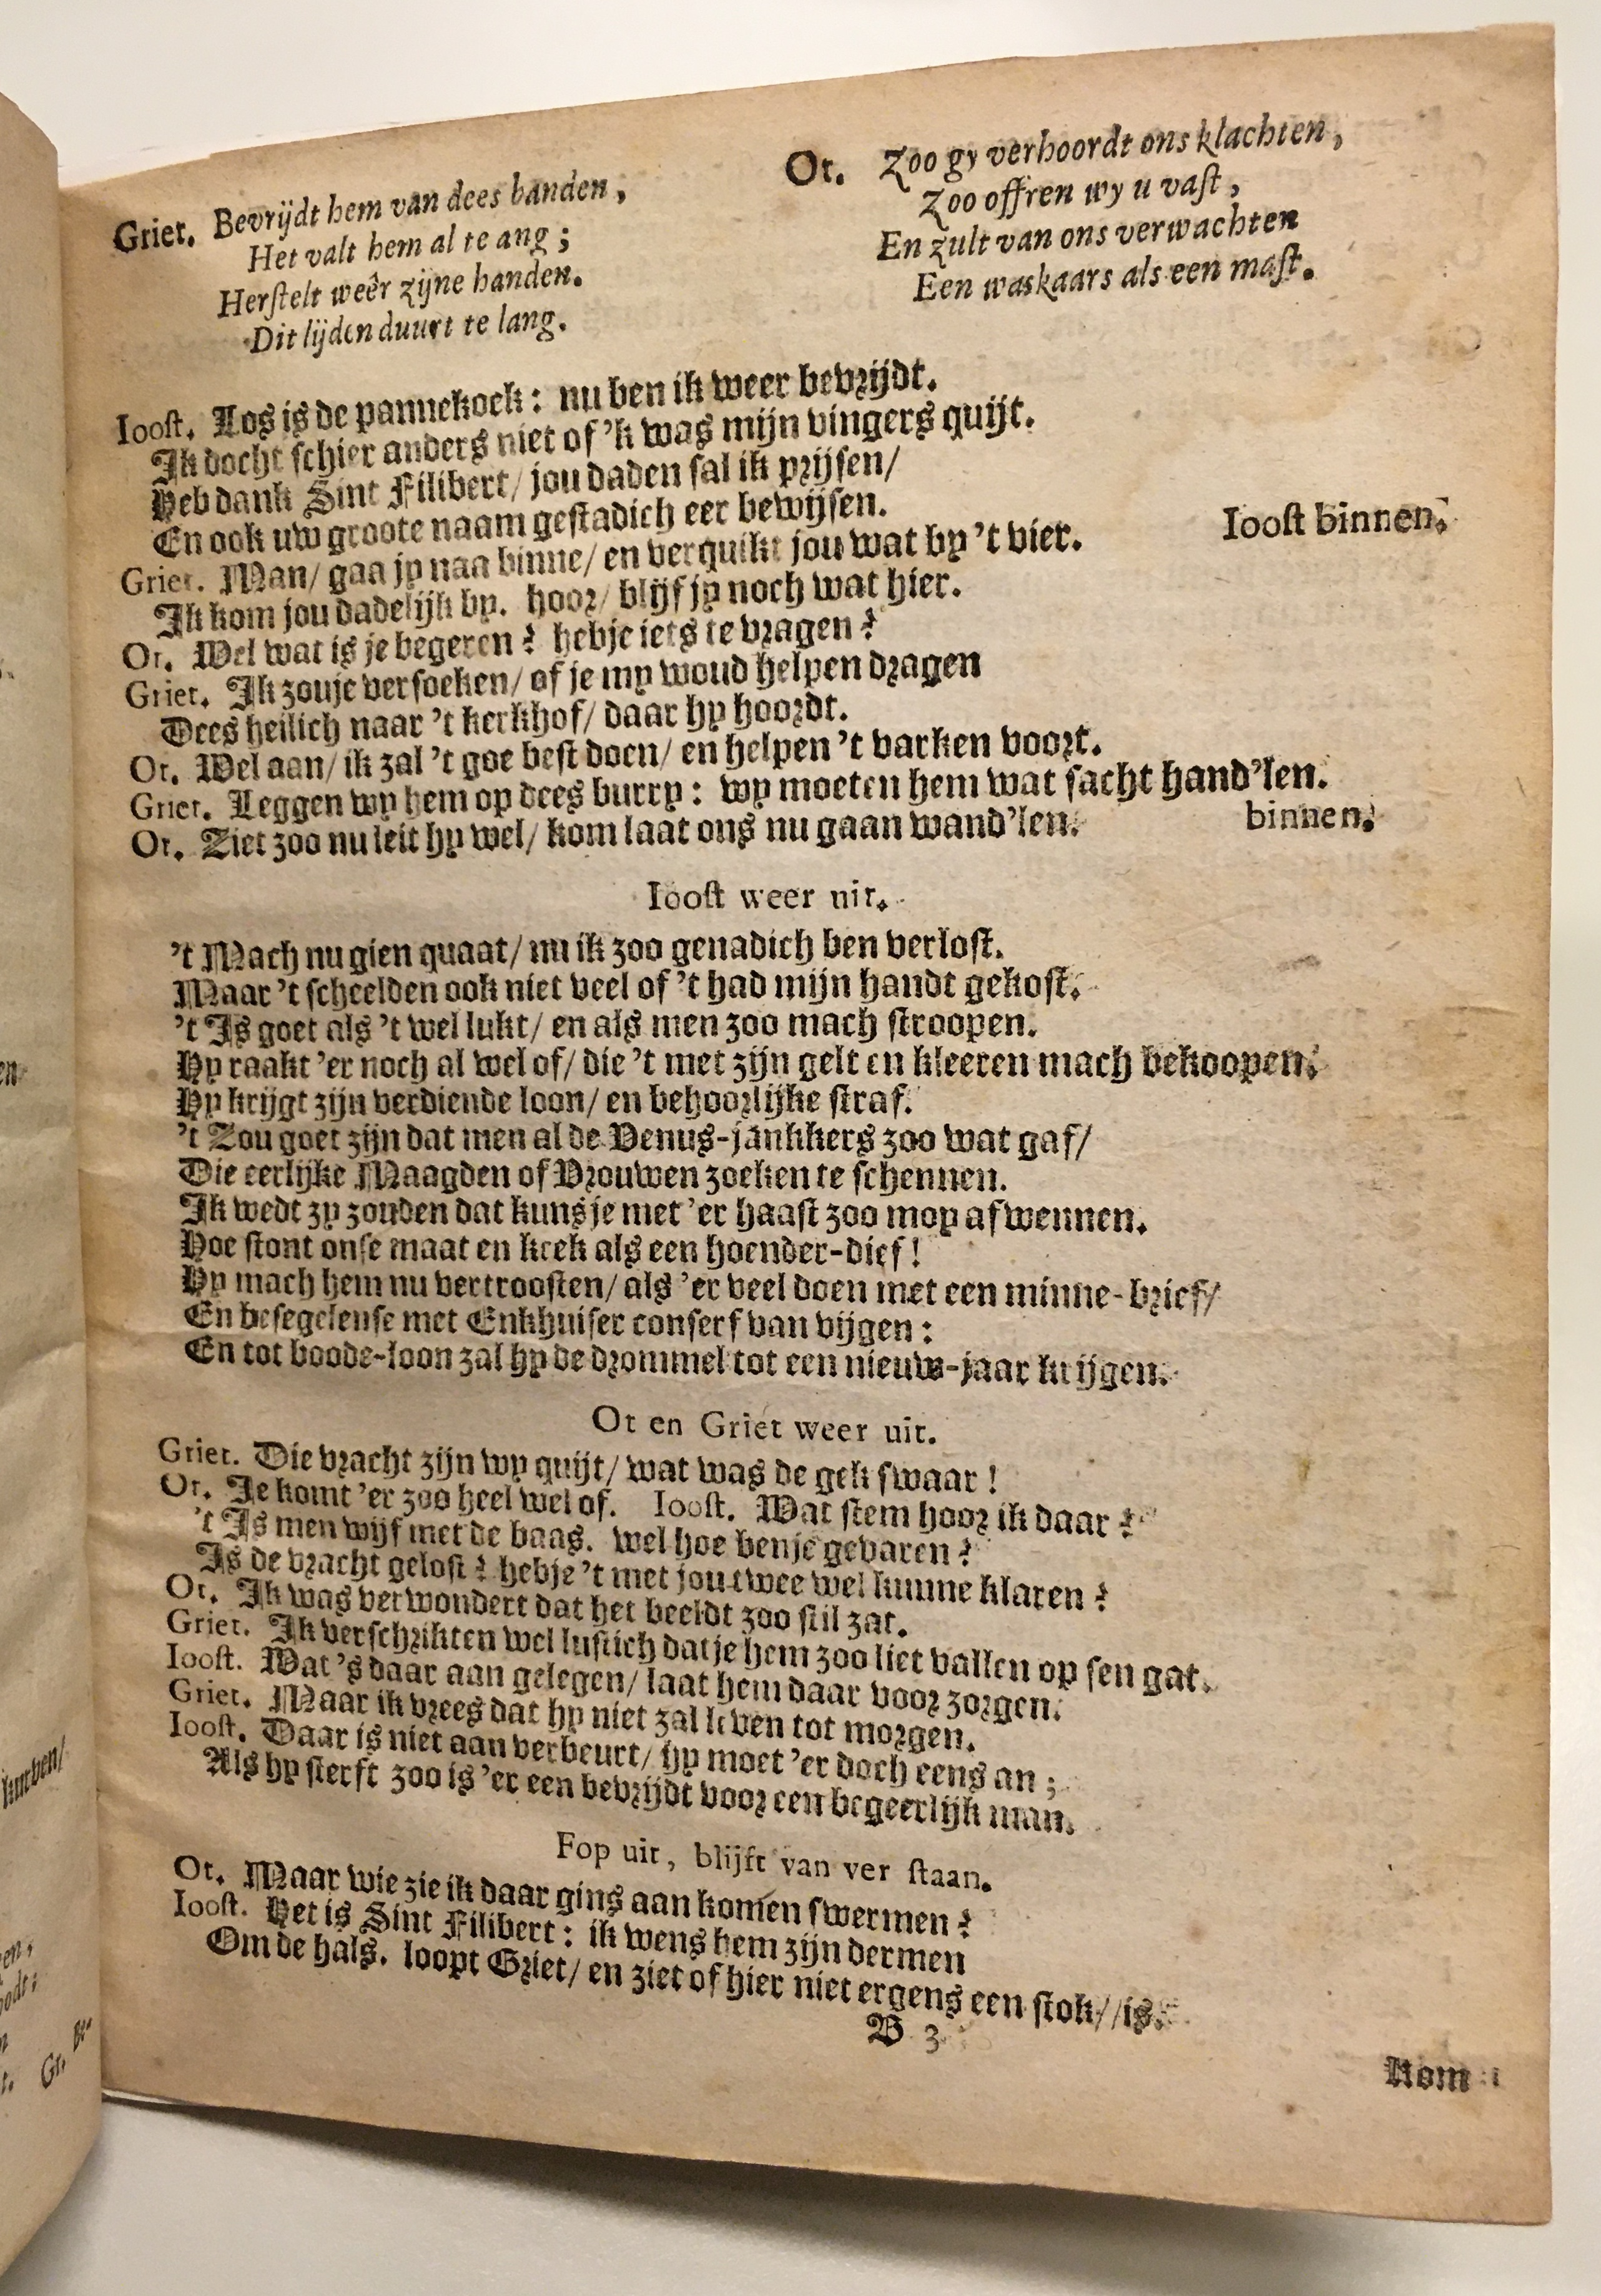 Griet. Bevrijdt hem van dees banden,
Het valt hem al te ang;
Herstelt weêr zijne handen.
Dit lijden duurt te lang.
Ot. Zoo gy verhoordt ons klachten,
Zoo offren wy u vast,
En zult van ons verwachten
Een waskaars als een mast.
Ioost. Los is de pannekoek: nu ben ik weer bevrijdt.
Ik docht schier anders niet of 'k was mijn vingers quijt.
Heb dank Sint Filibert/ jou daden sal ik prijsen/
En ook uw groote naam gestadich eer bewijsen.
Griet. Man/ gaa jy naa binne/ en verquikt jou wat by 't vier. Ioost binnen.
Ik kom jou dadelijk by. hoor/ blijf jy noch wat hier.
Ot. Wel wat is je begeren? hebje iets te vragen?
Griet. Ik zouje versoeken/ of je my woud helpen dragen
Dees heilich naar 't kerkhof/ daar hy hoordt.
Ot. Wel aan/ ik zal 't goe best doen/ en helpen 't varken voort.
Griet. Leggen wy hem op dees burry: wy moeten hem wat sacht hand'len.
Ot. Ziet zoo nu leit hy wel/ kom laat ons nu gaan wand'len. binnen.
Ioost weer uit.
't Mach nu gien quaat/ nu ik zoo genadich ben verlost.
Maar 't scheelden ook niet veel of 't had mijn handt gekost.
't Is goet als 't wel lukt/ en als men zoo mach stroopen.
Hy raakt 'er noch al wel of/ die 't met zijn gelt en kleeren mach bekoopen.
Hy krijgt zijn verdiende loon/ en behoorlijke straf.
't Zou goet zijn dat men al de Venus-jankkers zoo wat gaf/
Die eerlijke Maagden of Vrouwen zoeken te schennen.
Ik wedt zy zouden dat kunsje met 'er haast zoo moy afwennen.
Hoe stont onse maat en keek als een hoender-dief!
Hy mach hem nu vertroosten/ als 'er veel doen met een minne-brief/
En besegelense met Enkhuiser conserf van vijgen:
En tot boode-loon zal hy de drommel tot een nieuw-jaar krijgen.
Ot en Griet weer uit.
Griet. Die vracht zijn wy quijt/ wat was de gek swaar!
Ot. Je komt 'er zoo heel wel of. Ioost. Wat stem hoor ik daar?
't Is men wijf met de baas. wel hoe benje gevaren?
Is de vracht gelost? hebje 't met jou twee wel kunne klaren?
Ot. Ik was verwondert dat het beeldt zoo stil zat.
Griet. Ik verschrikten wel lustich datje hem zoo liet vallen op sen gat.
Ioost. Wat 's daar aan gelegen/ laat hem daar voor zorgen.
Griet. Maar ik vrees dat hy niet zal leven tot morgen.
Ioost. Daar is niet aan verbeurt/ hy moet 'er doch eens an;
Als hy sterft zoo is 'er een bevrijdt voor een begeerlijk man.
Fop uit, blijft van ver staan.
Ot. Maar wie zie ik daar gins aan komen swermen?
Ioost. Het is Sint Filibert: ik wens hem zijn dermen
Om de hals. loopt Griet/ en ziet of hier niet ergens een stok//is.
B 3
Kom